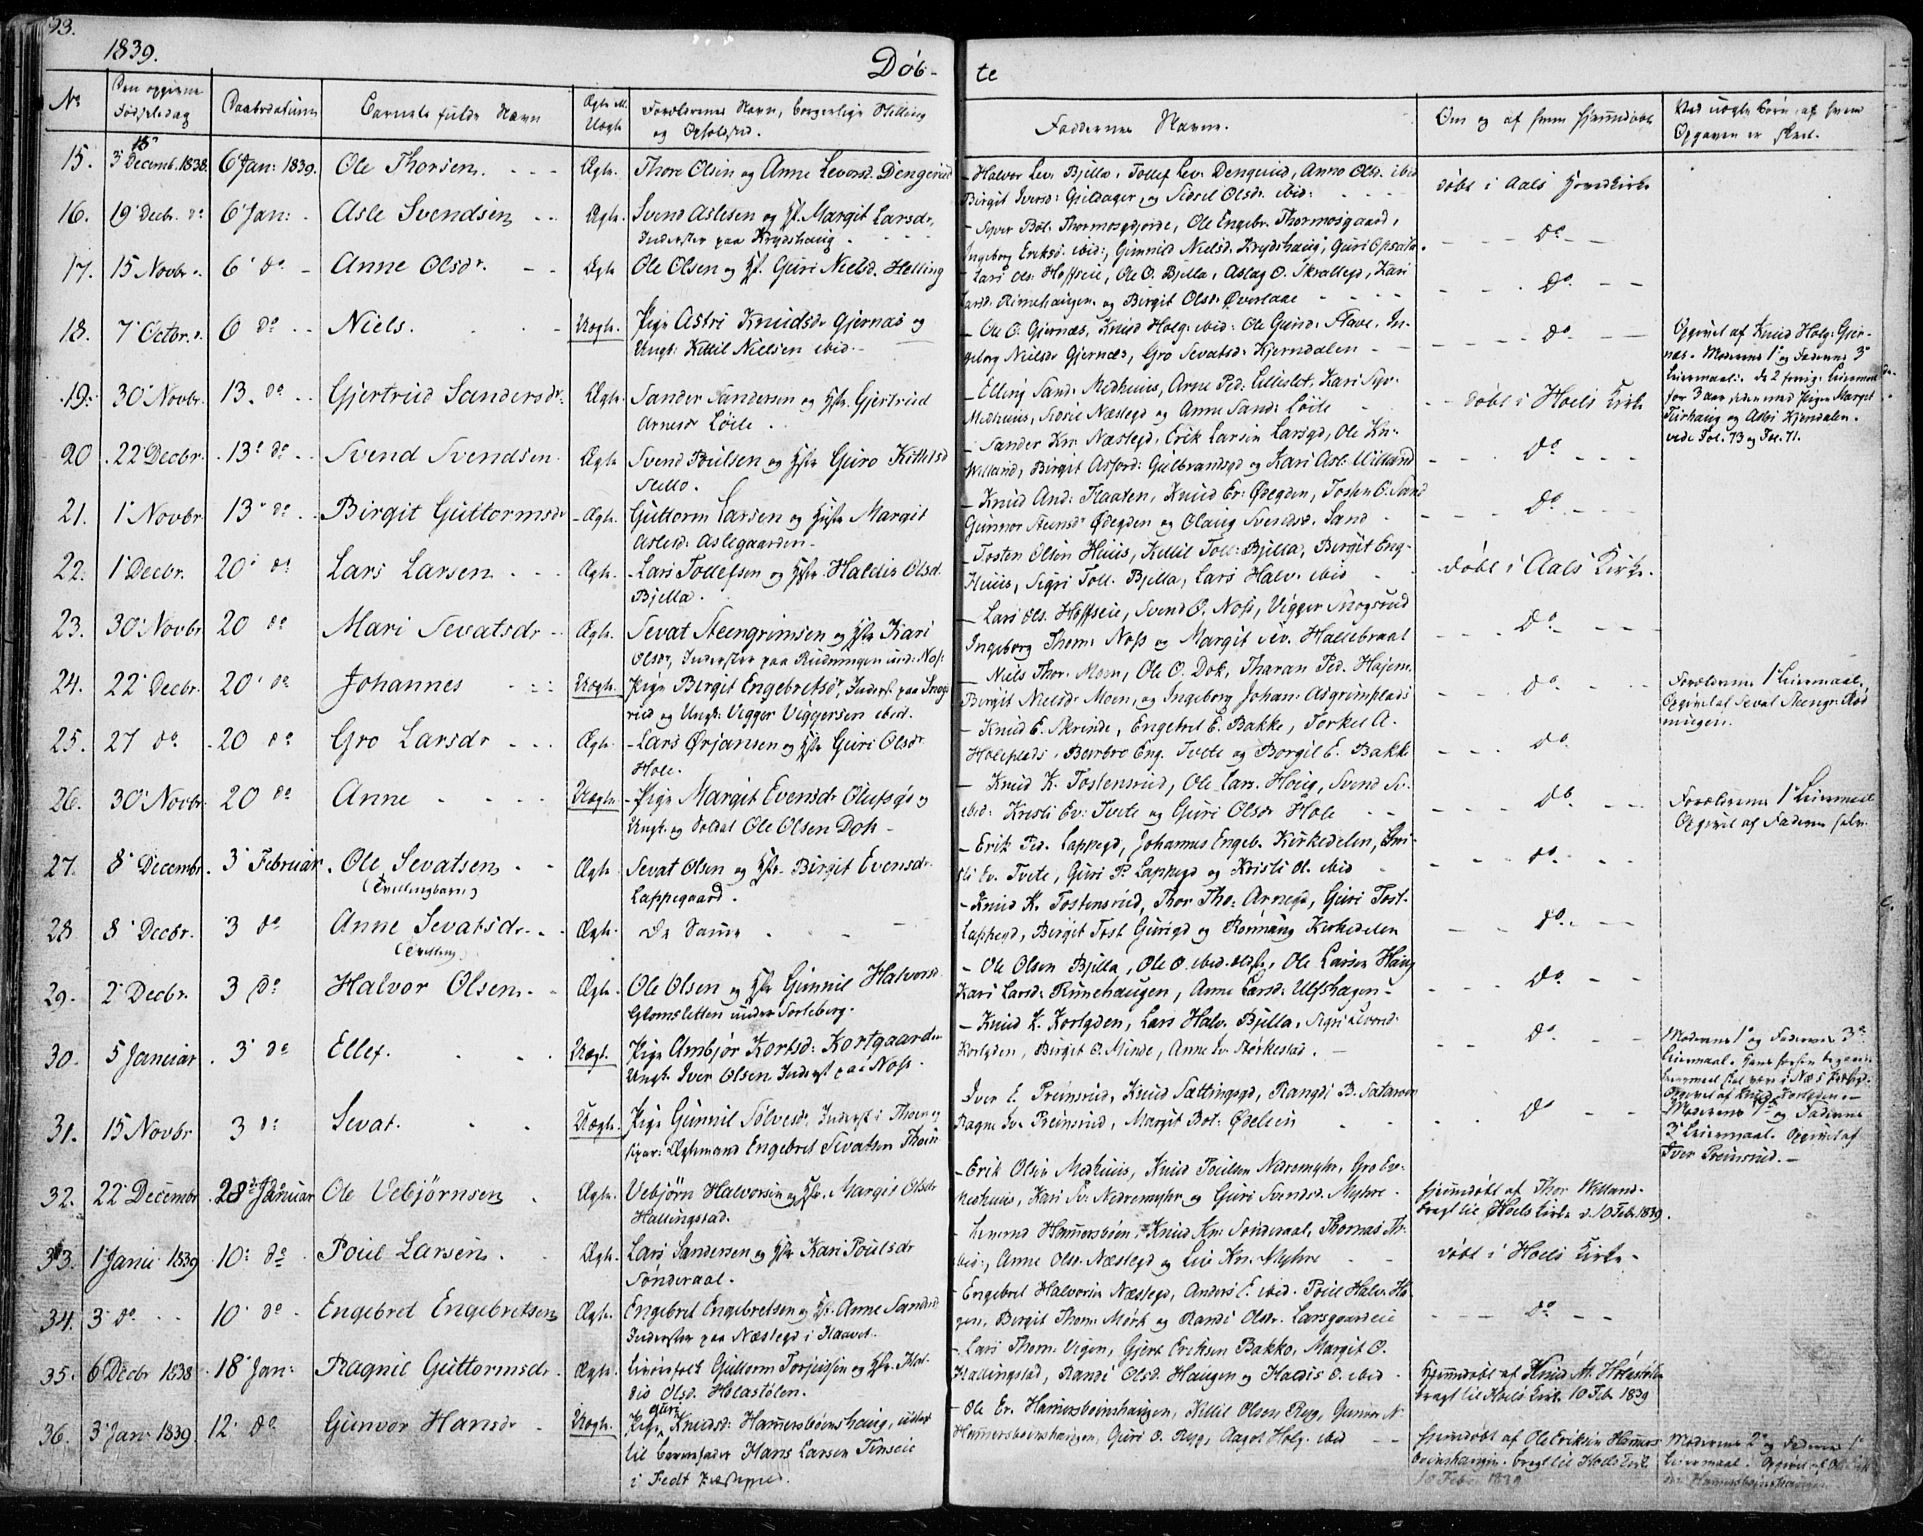 93.
1839.
Døb-
te
No
Den opgivne Fødselsdag
Daabsdatum
Barnets fulde Navn
Ægte el. Uægte
Forældrenes Navn, borgerlige Stilling og Opholdsted.
Faddernes Navne.
Om og af hvem hjemmedøbt
Ved uægte Børn, af hvem Opgaven er skeet.
15. 3 Decemb. 1838. 6 Jan: 1839. Ole Thorsen. Ægte. Thore Olsen og Anne Levors. Dengerud
- Halvor Lev. Bjella, Tollef Lev. Dengerud, Anne Olsd. ibid
Birgit Ivers: Gjeldager, og Sidsel Olsd. ibid:
døbt i Aals Hovedkirke
16. 19 Decbr. do 6 Jan: Asle Svendsen Ægte. Svend Aslesen og Hst. Margit Larsdr,
Inderster paa Krydshaug.
Ole Engebr. Thormosgaard,
Ingeborg Eriksd. ibid:, Gunnild Nielsd. Krydshaug, Guri Opsata.
do
17. 15 Novbr. 6 do Anne Olsdr. Ægte Ole Olsen og Hst. Guri Nielsd. Helling
- Lars Ols. Hoffseie, Ole O. Bjella, Aslag O. Skrattegd, Kari
Larsd. Rimehaugen og Birgit Olsd. Øverlaae
do
18. 7 Octbr. 6 do Niels. Uægte. Pige Astri Knudsdr Gjernæs og
Ungk: Killil Nielsen ibid.
- Ole O. Gjernæs, Knud Holg. ibid: Ole Gund: Stave, In-
geborg Nielsdr Gjernæs, Gro Sevatsd. Kjerndalen
do
Opgivet af Knud Holg: Gjer-
næs. Moderens 1ste og Faderens 3die
Leiermaal.
for 3 aar siden med Pigen Margit
vide Fol. 73 og Fol. 71.
19. 30 Novbr. 13. do Gjertrud Sandersdr. Ægte. Sander Sandersen og Hst. Gjertrud
Arnesdr Løile.
- Elling Sand: Medhuus, Arne Ped: Lilleslet, Kari Syv-
Medhuus, Sidsel Næslegd og Anne Sand: Løile
døbt i Hoels Kirke
20 22 Decbr. 13 do Svend Svendsen Ægte. Svend Poulsen og Hst. Guro Kittilsd
- Sander Kn. Næslegd, Erik Larsen Larsgd, Ole Kn.
Villand, Birgit Asford: Gulbrandsgd og Kari Asl. Villand
do
21. 1 Novbr 13 do Birgit Guttormsdr Ægte. Guttorm Larsen og Hust. Margit
Aslesd: Aslegaarden.
- Knud And: Flaaten, Knud Er: Ødegden, Tosten O. Sand
Gunnor Steensdr Ødegden og Olaug Svendsd. Sand
do
22. 1 Decbr. 20 do Lars Larsen Ægte. Lars Tollefsen og Hst. Haldis Olsd.
Bjella.
- Tosten Olsen Huus, Killil Toll: Bjella, Birgit Eng-
Huus, Sigri Toll. Bjella, Lars Halv. ibid
døbt i Aals Kirke.
23. 30 Novbr 20 do Mari Sevatsdr Ægte. Sevat Steengrimsen og Hst. Kari
Olsdr, Inderster paa Rudningen und: Noss
- Lars Ols. Hoffseie, Svend O. Noss, Vigger Snogsrud
Ingeborg Thom: Noss og Margit Sev. Hallebraat
do
24. 22 Decbr. 20 do Johannes Uægte. Pige Birgit Engebretsdr, Inderst paa Snogs
rud og Ungk: Vigger Viggersen ibid.
- Niels Thor. Moen, Ole O. Dok, Tharan Ped. Hajem
Birgit Nielsdr Moen, og Ingeborg Johan: Asgrimplads
do
Forældrenes 1ste Leiermaal.
Opgivet af Sevat Steengr. Rud
ningen.
25. 27 do 20 do Gro Larsdr Ægte. Lars Ørjansen og Hst. Guri Olsdr
Hole.
- Knud E. Skrinde, Engebret E. Bakke, Torkel A.
Holeplads, Barbro Eng. Tvete og Borgil E. Bakke
do
26. 30 Novbr. 20 do Anne Uægte. Pige Margit Evensdr Olufsgd og
Ungk. og Soldat Ole Olsen Dok
- Knud K. Tostensrud, Ole Lars. Houg, Svend Sv.
ibid: Kristi Ev: Tvete og Guri Olsdr Hole
do
Forældrenes 1ste Leiermaal
Opgivet af Faderen selv.
27. 8 Decembr. 3 Februar. Ole Sevatsen Ægte. Sevat Olsen og Hst. Birgit Evensdr.
(Tvillingbarn)
Lappegaard.
- Erik Ped. Lappegd, Johannes Engeb. Kirkedelen, Kri-
sti Ev. Tvete, Guri P. Lappegd og Kristi O. ibid
do
28. 8 Decbr. 3 do Anne Sevatsdr. Ægte. De Samme
(Tvilling)
- Knud K. Tostensrud, Thor Tho: Arnegd, Guri Tost.
Lappegd, Birgit Tost Gurigd og Rønnaug Kirkedelen
do
29. 2 Decbr. 3 do Halvor Olsen. Ægte. Ole Olsen og Hst. Gunnil Halvorsd
Glomsletten under Torleberg.
- Ole Olsen Bjella, Ole O. ibid. ældst, Ole Larsen Haug
Kari Larsd: Rimehaugen, Anne Larsd: Ulfshagen
do
30. 5 Januar 3 do Ellef. Uægt. Pige Ambjør Kortsd: Kortgaarden
Ungk. Iver Olsen Inderst paa Noss.
- Knud K. Kortgden, Lars Halv. Bjella, Sigri Levord:
Kortgden, Birgit O. Minde, Anne Iv. Storkestad.
do
Moderens 1ste og Faderens 3die
Leiermaal.
Opgivet af Knud Kortgden
31. 15 Novbr 3 do Sevat. Uægte. Pige Gunnil Sølvesdr, Inderst i Thoen og
Ægtemand Engebret Sevatsen Thoen
Iver E. Preinsrud, Knud Sættingsgd, Rangdi B. Sataroen
Ragne Iv. Breinsrud, Margit Bot. Ødelien
do
Moderens og Faderens
3die Leiermaal. Opgivet af
Iver Preinsrud.
32. 22 Decembr 28 Januar Ole Vebjørnsen Ægte. Vebjørn Halvorsen og Hst. Margit Olsdr
Hallingstad.
- Erik Olsen Medhuus, Knud Poulsen Nedremyhr, Gro Ev.
Medhuus, Kari Sv. Nedremyhr og Guri Svendsd. Myhre
hjemmedøbt af Thor Villand.
bragt til Hoels Kirke d. 10 Feb. 1839.
33. 1 Janu. 1839 10 do Poul Larsen. Ægte. Lars Sandersen og Hst. Kari Poulsdr
Sønderaal.
Hammersbøen, Knud Kn. Sønderaal, Thomas Th.
ibid:, Anne Olsd. Næslegd og Liv Kn. Myhre
døbt i Hoels Kirke.
34. 3 do 10 do Engebret Engebretsen Ægte. Engebret Engebretsen og Hst. Anne Sandersd
Inderster paa Næslegd i Haavet.
Engebret Halvorsen Næslegd, Anders E. ibid. Poul Halv. Ha-
gen, Birgit Thom: Mørk og Randi Olsdr. Larsgaardeie
do
35. 6 Decbr 1838 18 Jan: Ragnil Guttormsdr. Ægte. Guttorm Torjeussen og Hst. Hal-
dis Olsd. Holastølen.
- Lars Thom. Vigen, Gjert Eriksen Bakko, Margit O.
Hallingstad, Randi Olsd. Haugen og Haldis O. ibid
hjemmedøbt af Knud A. Holastølen
bragt til Hoels Kirke 10 Feb 1839
36. 3 Jan: 1839 12 do Gunvor Hansdr Uægte. Pige Guri Knudsd: Hammersbøenshaug, udlagt
til Barnefader Hans Larsen Tinseie
i Fedt
- Ole Er. Hammersbøenshaugen, Killil Olsen Ryg, Gunnor N.
Hammersbøenshaugen, Guri O. Ryg, Aagot Holg. ibid
hjemmedøbt af Ole Eriksen Hammers
bøenshaugen. bragt til Hoels Kirke
10 Feb. 1839
Moderens 2det og Faderens 1ste
Leiermaal. Opgivet af
Hammersbøenshaugen